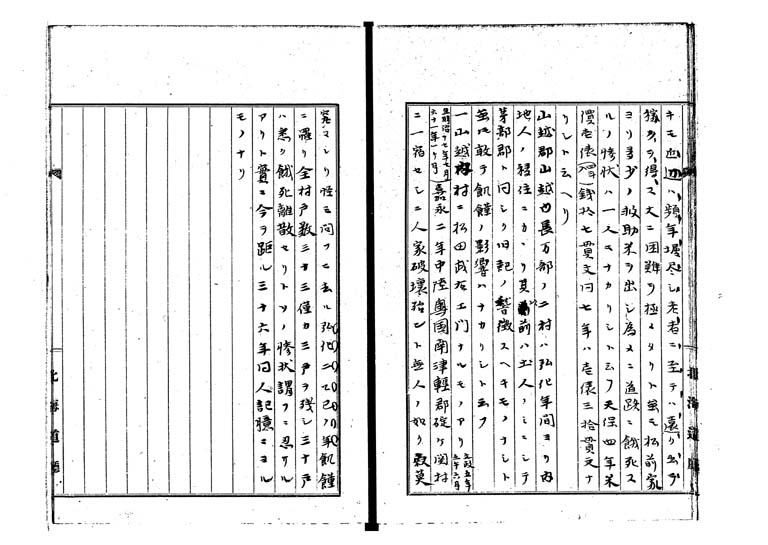 キモ近辺ハ頻年堀尽シ老者ニ至テハ遠ク出テ
稼クヲ得ス大ニ困難ヲ極メタリト虽モ松前家
ヨリ多少ノ救助米ヲ出シ為メニ道路ニ餓死ス
ルノ惨状ハ一人モナカリシト云フ天保四年米
價壱俵銭拾七貫文同七年ハ壱俵三拾貫文ナ
リシト云ヘリ
山越郡山越長万部ノ二村ハ弘化年間ヨリ内
地人ノ移住ニカヽリ其以前ハ土人ノミニシテ
茅部郡ト同シク旧記ノ徴スヘキモノナシト
虽モ敢テ飢饉ノ影響ハナカリシト云フ
一山越内村ニ松田武右エ門ナルモノアリ文政五年
壬午六月
生明治十七年七月
六十一年一ヶ月嘉永二年中陸奥国南津軽郡碇ヶ関村
ニ一宿セシニ人家破壊殆ント無人ノ如ク寂莫
窮マレリ怪ミ問フニ去ル弘化二乙巳ノ年飢饉
ニ罹リ全村戸数三十三僅カ三戸ヲ残シ三十戸
ハ悉ク餓死離散セリトソノ惨状謂フニ忍ヒサル
アリト實ニ今ヲ距ル三十六年同人記憶ニヨル
モノナリ
北海道廳